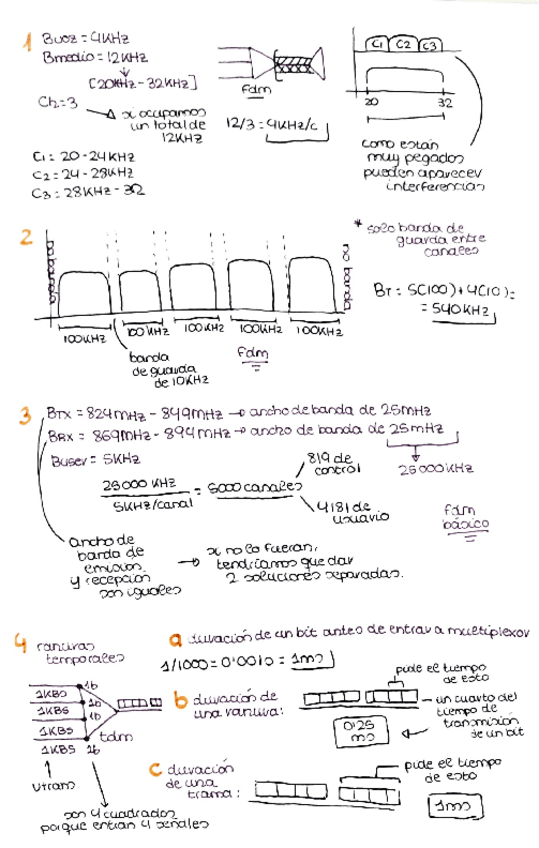 1 Bvoz = 4KHz
Bmedio = 12KHz
[20KHz - 32KHz]
Ch = 3
si ocupamos
un total de
12KHz
C1: 20 - 24KHz
C2 = 24 - 28KHz
C3 = 28KHz - 32
fdm
12/3 = 4KHz/c
C1 C2 C3
20 32
como están
muy pegados
pueden aparecer
interferencias
2
no banda
no banda
100KHz 100KHz 100KHz 100KHz 100KHz
banda
de guarda
de 10KHz
fdm
* solo banda de
guarda entre
canales
BT = 5(100) + 4(10) =
= 540KHz
3 BTX = 824MHz - 849MHz → ancho de banda de 25MHz
BRX = 869MHz - 894MHz → ancho de banda de 25MHz
Buser = 5KHz
25000 KHz
25000 KHz
5KHz/canal
= 5000 canales
819 de
control
4181 de
usuario
fdm
básico
ancho de
banda de
emisión
y recepción
son iguales
→ si no lo fueran,
tendríamos que dar
2 soluciones separadas.
4 ranuras
temporales
1KBS 1b
1KBS 1b
1KBS 1b
1KBS
1KBS 1b
tdm
Vtrans
son 4 cuadrados
porque entran 4 señales
a duración de un bit antes de entrar a multiplexor
1/1000 = 0'0010 = 1ms
b duración de
una ranura:
pide el tiempo
de esto
un cuarto del
tiempo de
transmisión
de un bit
0'25
ms
c duración
de una
trama:
pide el tiempo
de esto
1ms